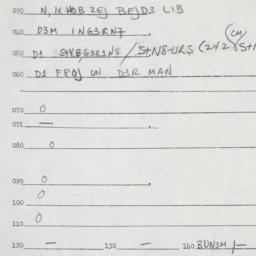 030 N, IK HOB ZEJ BEJD3 LIB
040 D3M ING3RN7
050 D1 S+VEG3R1NS / S+N8-URS (2X2
060 D1 FROJ UN D3R MAN
070 0
071 —
080 0
090 0
100 0
110 0
120 — 130 — 140 BUN3M /—